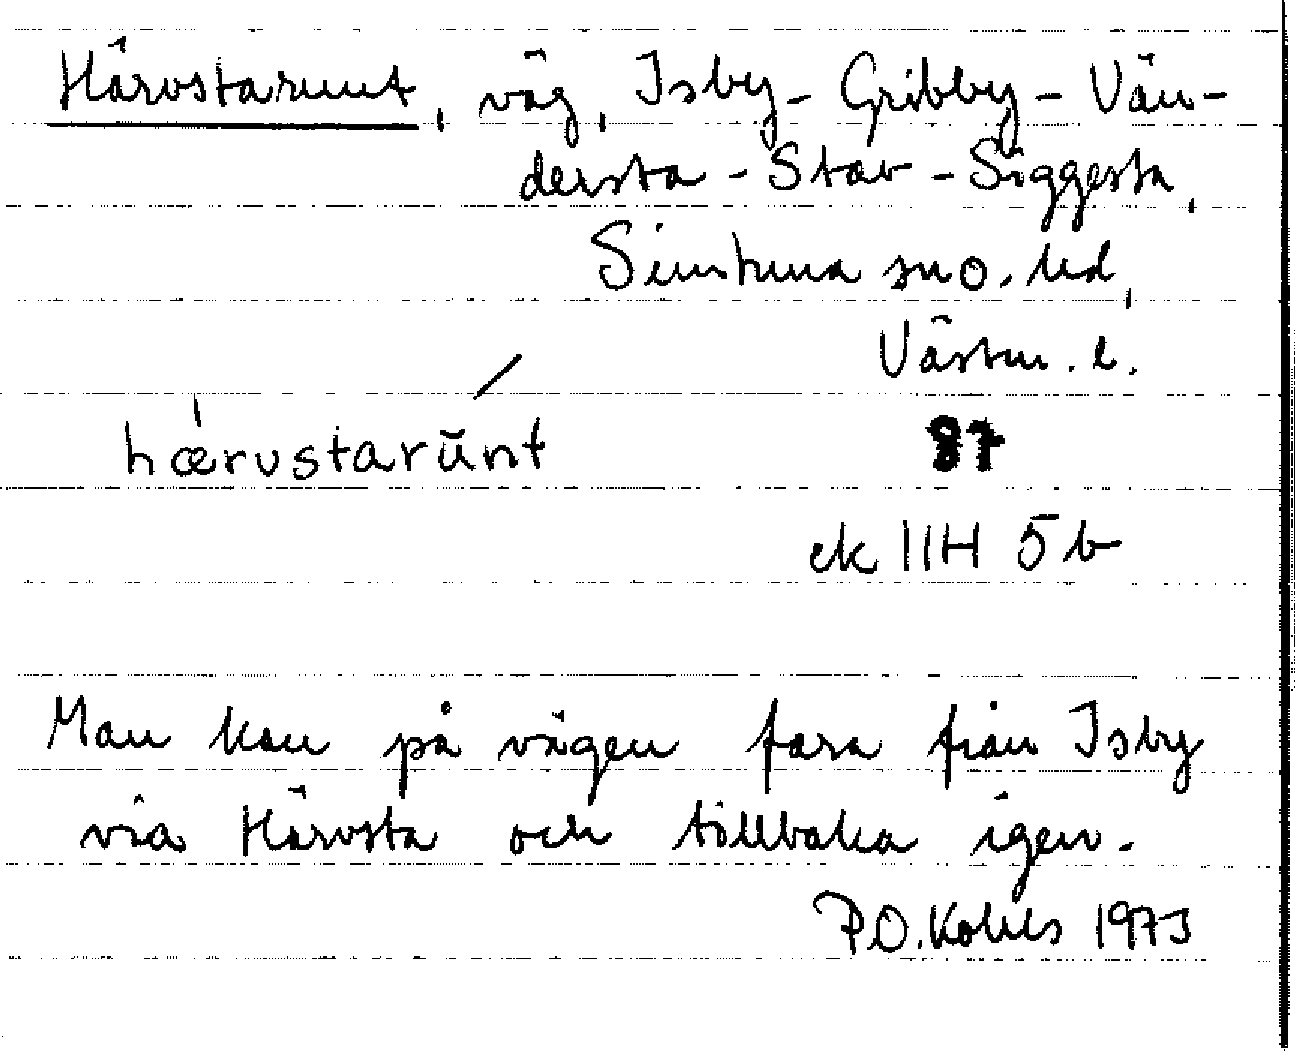 Härvstarunt, väg, Isby - Gribby - Vän-
dersta - Stav - Siggesta,
Simtuna sn o. hd,
Västm. l.
hærvstarŭnt 87
ek 11H 5b
Man kan på vägen fara från Isby
via Härvsta och tillbaka igen.
P.O. 1973